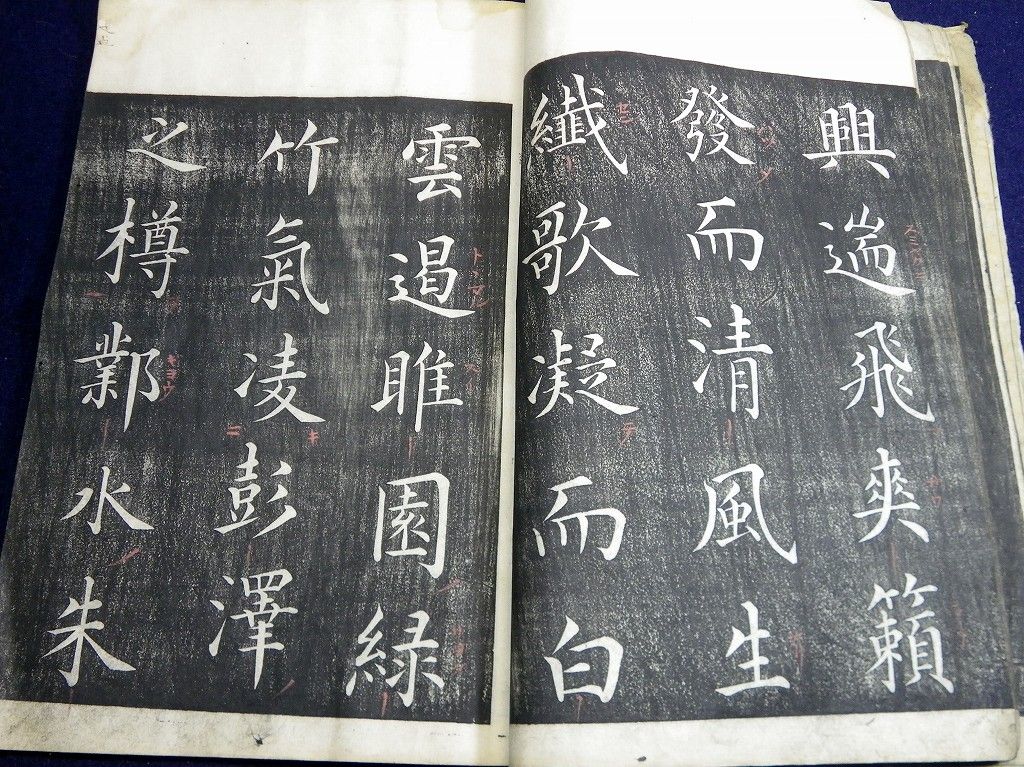 興遄飛爽籟
發而清風生
纖歌凝而白
雲遏睢園緑
竹氣凌彭澤
之樽鄴水朱